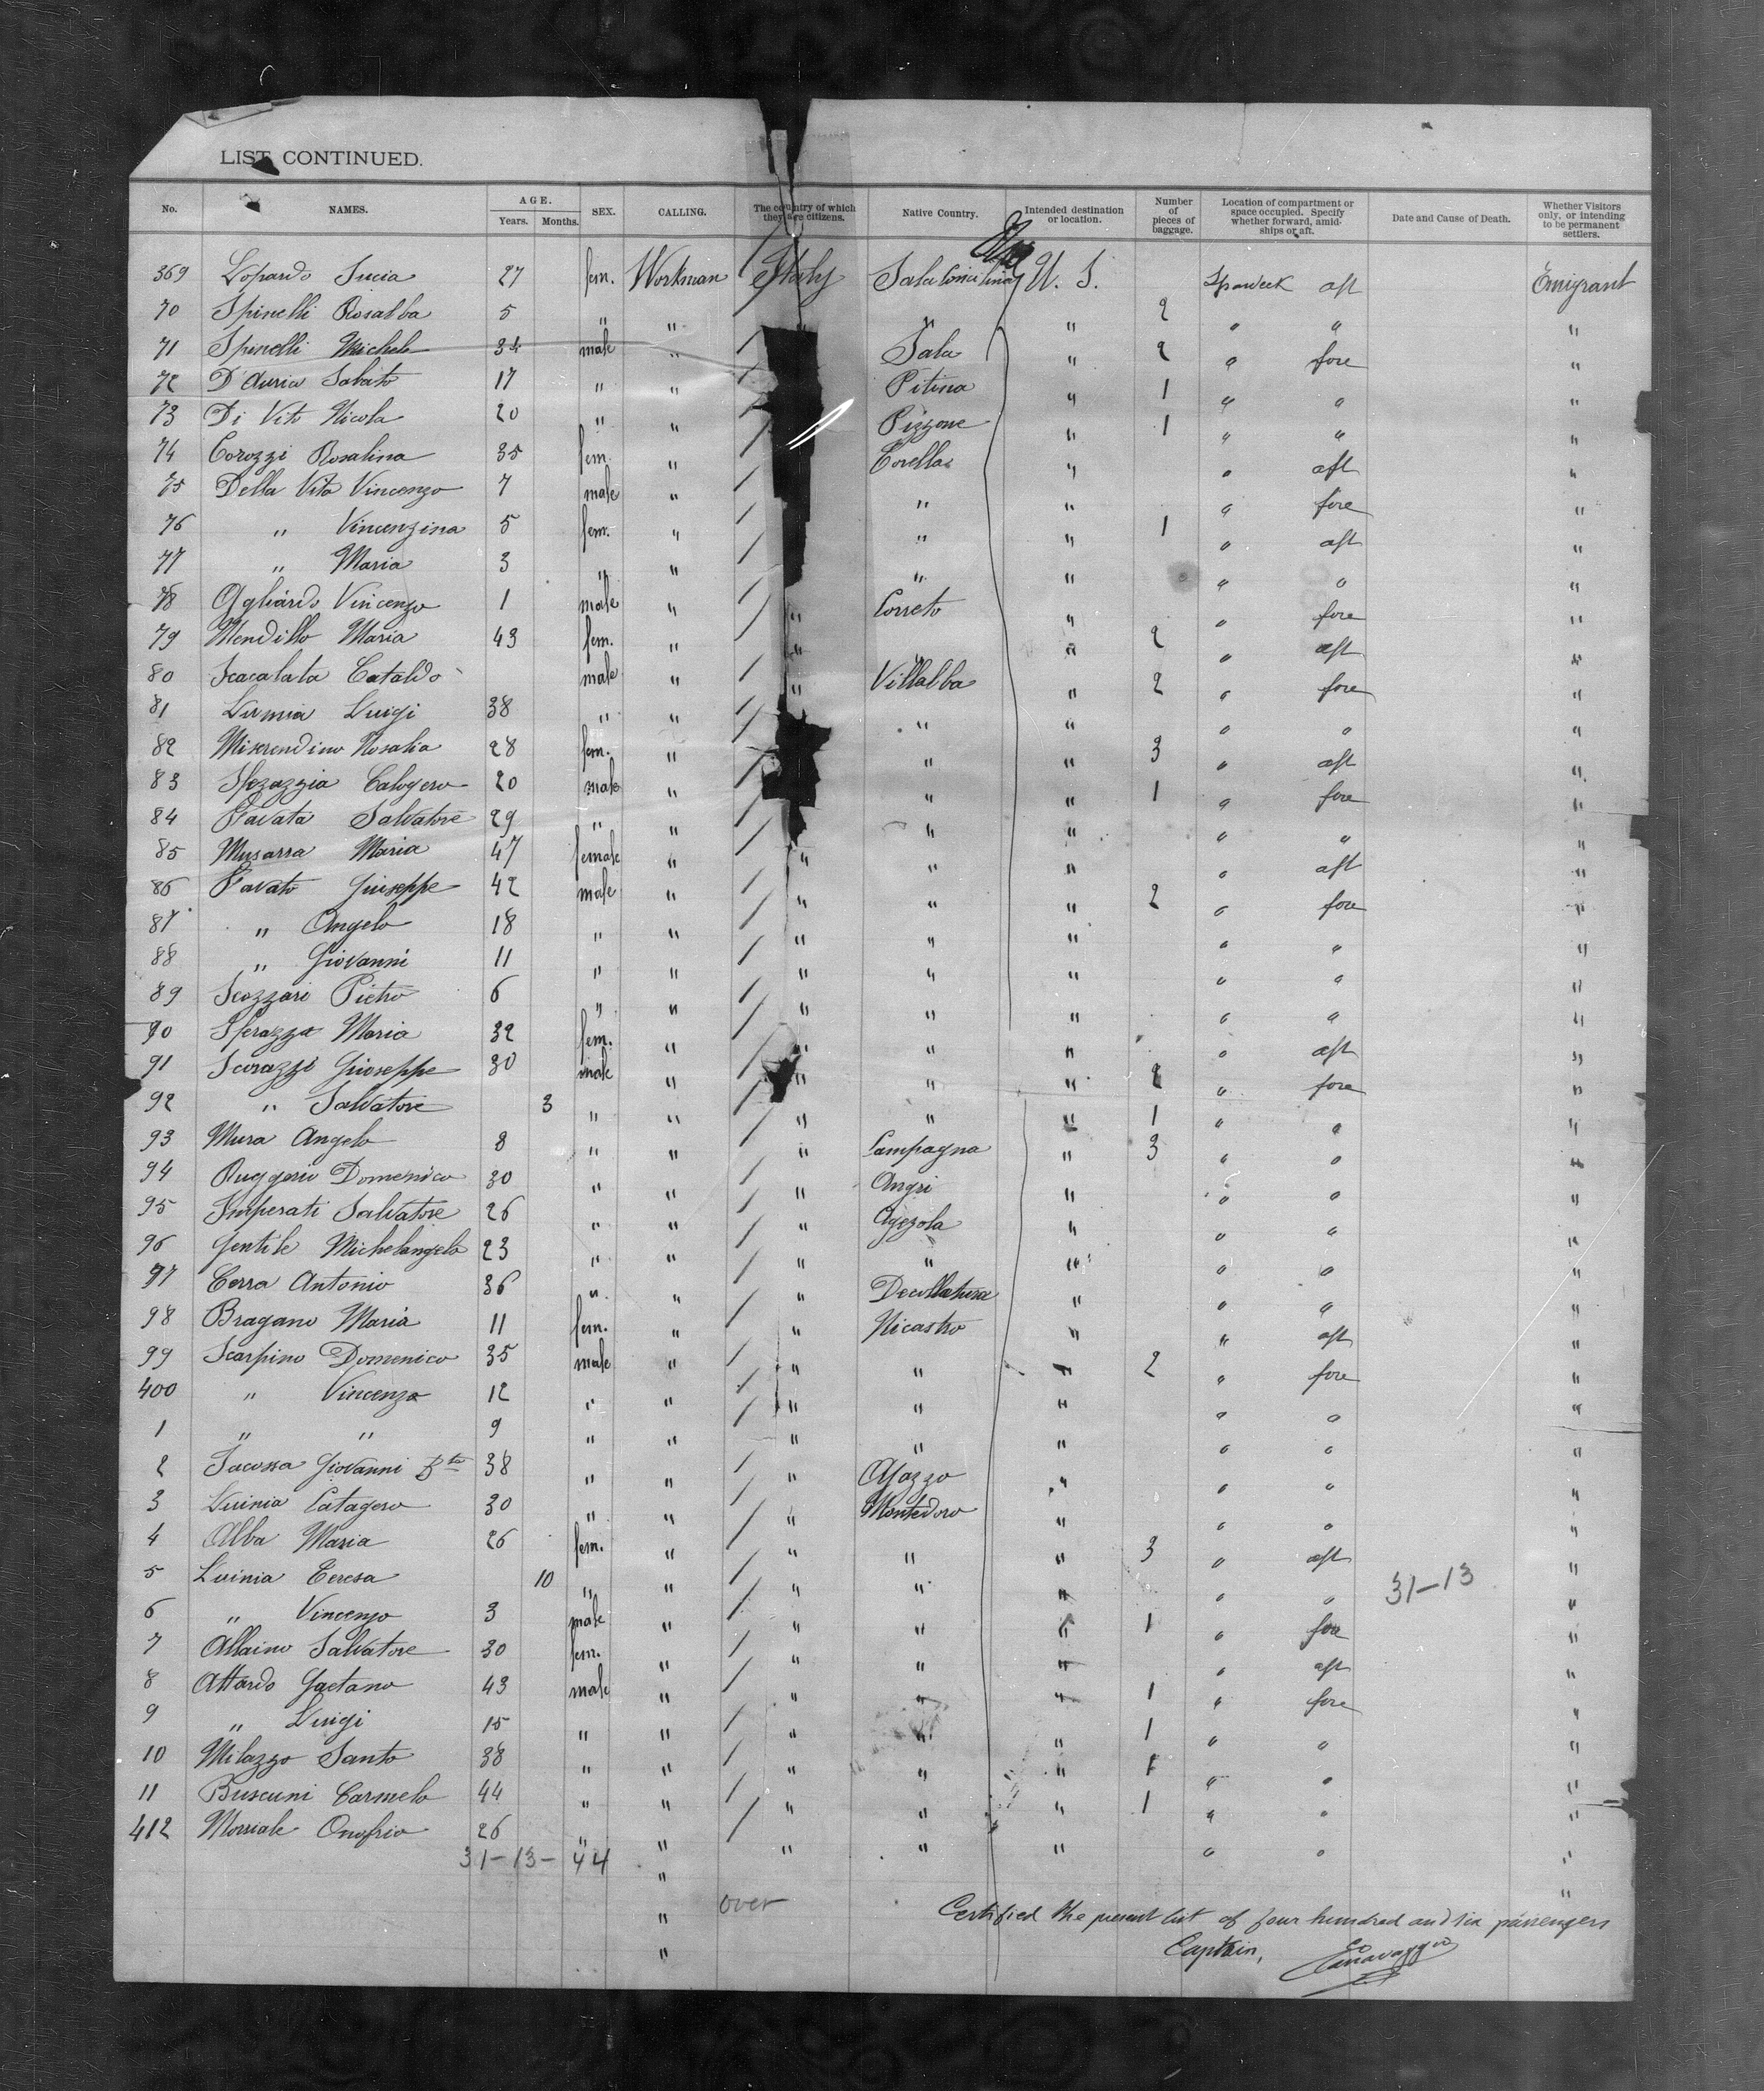 LIST CONTINUED.
No. NAMES. AGE. Years. Months. SEX. CALLING. The country of which they are citizens. Native Country. Intended destination or location. Number of pieces of baggage. Location of compartment or space occupied. Specify whether forward, amidships or aft. Date and Cause of Death. Whether Visitors only, or intending to be permanent settlers.
369 Lopardo Lucia 27 fem. Workman Italy Sala U. S. aft Emigrant
70 Spinelli Rosalba 5 " " " " 2 " " "
71 Spinelli Michele 34 male " Sala " 2 " fore "
72 D'Auria Sabato 17 " " Pitina " 1 " " "
73 Di Vito Nicola 20 " " Pizzone " 1 " " "
74 Corozzi Rosalina 35 fem. " Corella " " aft "
75 Della Vita Vincenzo 7 male " " " " fore "
76 " Vincenzina 5 fem. " " " 1 " aft "
77 " Maria 3 " " " " " " "
78 Agliardo Vincenzo 1 male " " Correto " " fore "
79 Mendillo Maria 43 fem. " " " " 2 " aft "
80 Scacalata Cataldo male " " Villalba " 2 " fore "
81 Lumia Luigi 38 " " " " " " "
82 Miserendino Rosalia 28 fem. " " " 3 " aft "
83 Calogero 20 male " " " 1 " fore "
84 Favata Salvatore 29 " " " " " " "
85 Musarra Maria 47 female " " " " " aft "
86 Favato Giuseppe 42 male " " " " 2 " fore "
87 " Angelo 18 " " " " " " " "
88 " Giovanni 11 " " " " " " " "
89 Scozzari Pietro 6 " " " " " " " "
90 Sperazza Maria 32 fem. " " " " " aft "
91 Scorazzi Giuseppe 30 male " " " " 2 " fore "
92 " Salvatore 3 " " " " " 1 " " "
93 Mura Angelo 8 " " " Campagna " 3 " " "
94 Ruggerio Domenico 30 " " " Angri " " " "
95 Imperati Salvatore 26 " " " Agezola " " " "
96 Gentile Michelangelo 23 " " " " " " " "
97 Cerra Antonio 36 " " " Decollatura " " " "
98 Bragano Maria 11 fem. " " Nicastro " " aft "
99 Scarpino Domenico 35 male " " " " 2 " fore "
400 " Vincenzo 12 " " " " " " " "
1 " " 9 " " " " " " " "
2 Giovanni Bta 38 " " " Ajazzo " " " "
3 Luinia Catagero 30 " " " Montedoro " " " "
4 Alba Maria 26 fem. " " " " 3 " aft "
5 Luinia Teresa 10 " " " " " " " 31-13 "
6 " Vincenzo 3 male " " " " 1 " fore "
7 Allaino Salvatore 30 fem. " " " " " aft "
8 Attardo Gaetano 43 male " " " " 1 " fore "
9 " Luigi 15 " " " " " 1 " " "
10 Milazzo Santo 38 " " " " " 1 " " "
11 Buscuni Carmelo 44 " " " " " 1 " " "
412 Morriale Onofrio 26 " " " " " " " "
31-13-44 "
over " Certified the present list of four hundred and six passengers
" Captain,